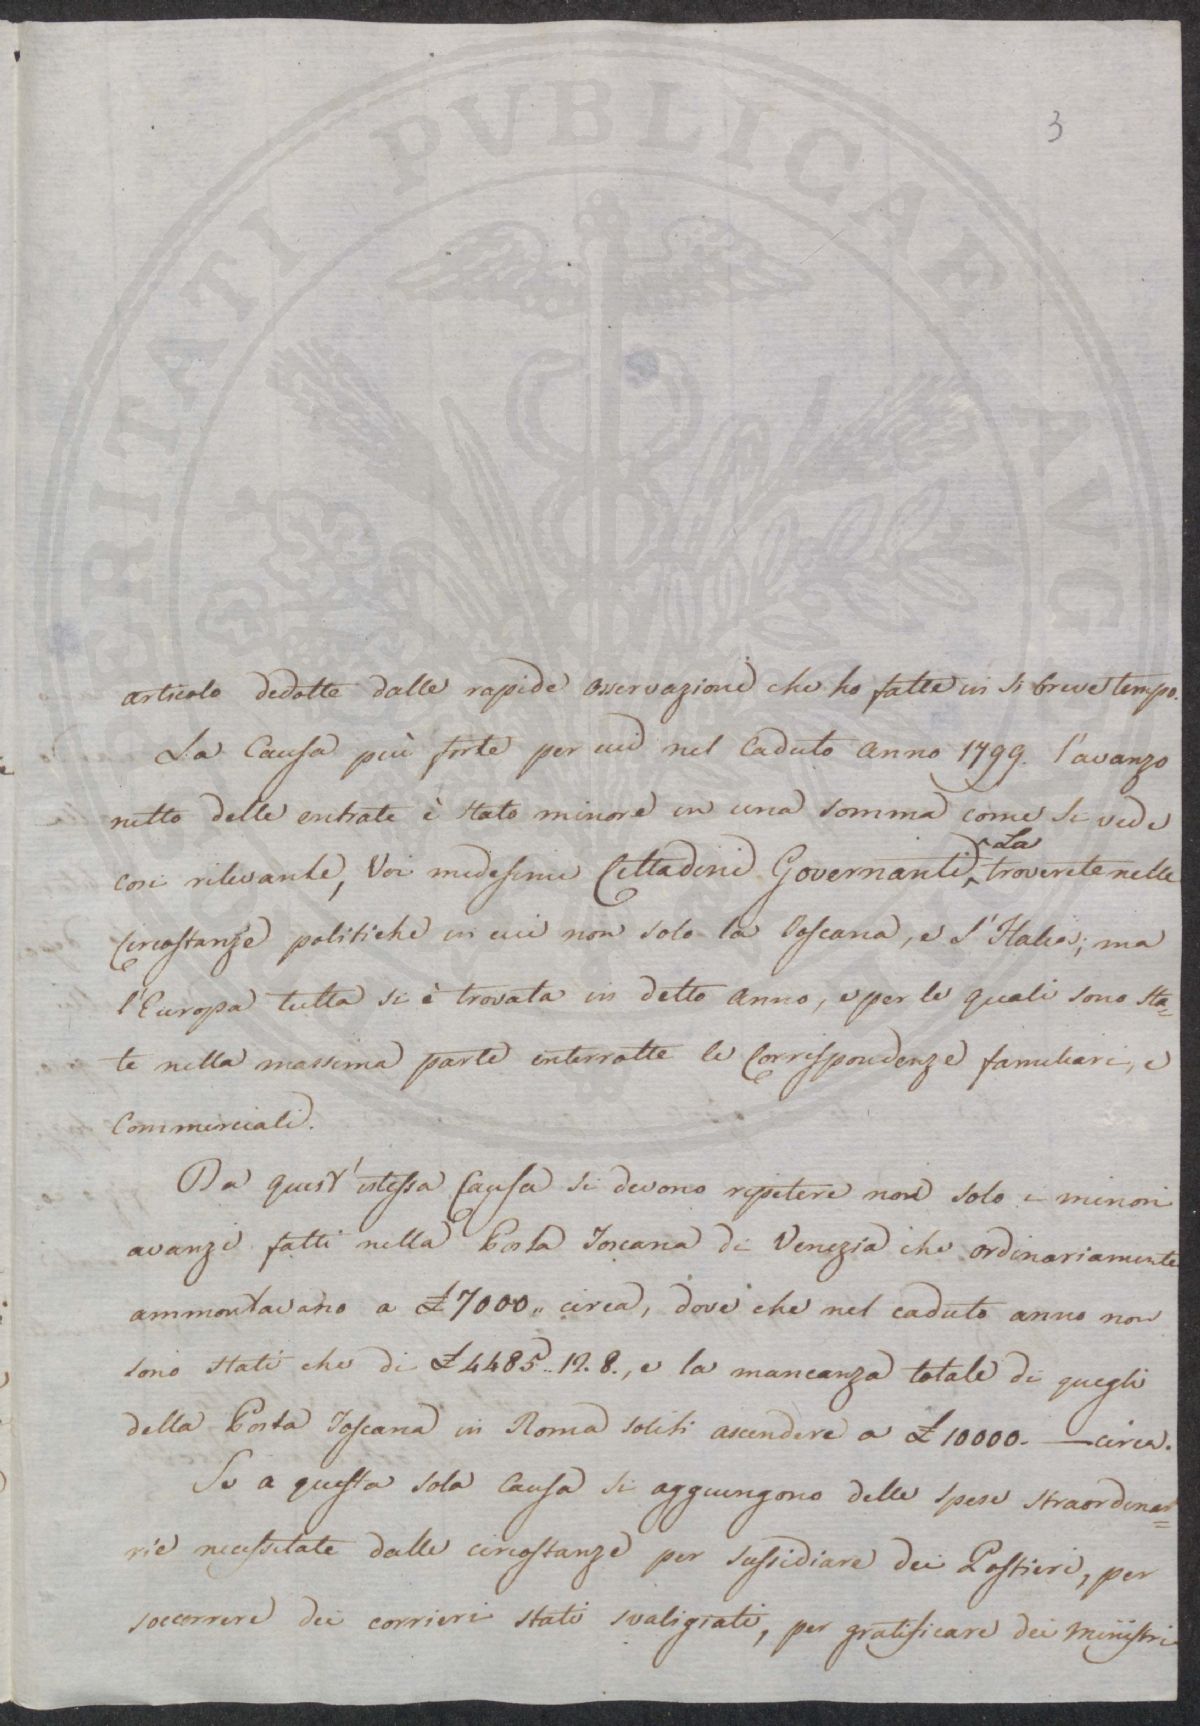 3
articolo dedotte dalle rapide Osservazioni che ho fatte in sì breve tempo.
La Causa più forte per cui nel Caduto Anno 1799. l'avanzo
netto delle entrate è stato minore in una somma come si vede
così rilevante, Voi medesimi Cittadini Governanti La troverete nelle
Circostanze politiche in cui non solo la Toscana, e l'Italia, ma
l'Europa tutta si è trovata in detto Anno, e per le quali sono sta=
te nella massima parte interrotte le Corrispondenze familiari, e
Commerciali.
Da quest'istessa Causa si devono ripetere non solo i minori
avanzi fatti nella Posta Toscana di Venezia che ordinariamente
ammontavano a £ 7000.. circa, dove che nel caduto anno non
sono stati che di £ 4485.. 12. 8., e la mancanza totale di quegli
della Posta Toscana in Roma soliti ascendere a £ 10000. — circa.
Se a questa sola Causa si aggiungono delle spese straordina=
rie necessitate dalle circostanze per sussidiare dei Postieri, per
soccorrere dei corrieri stati svaligiati, per gratificare dei Ministri
PVBLICAE
AVG